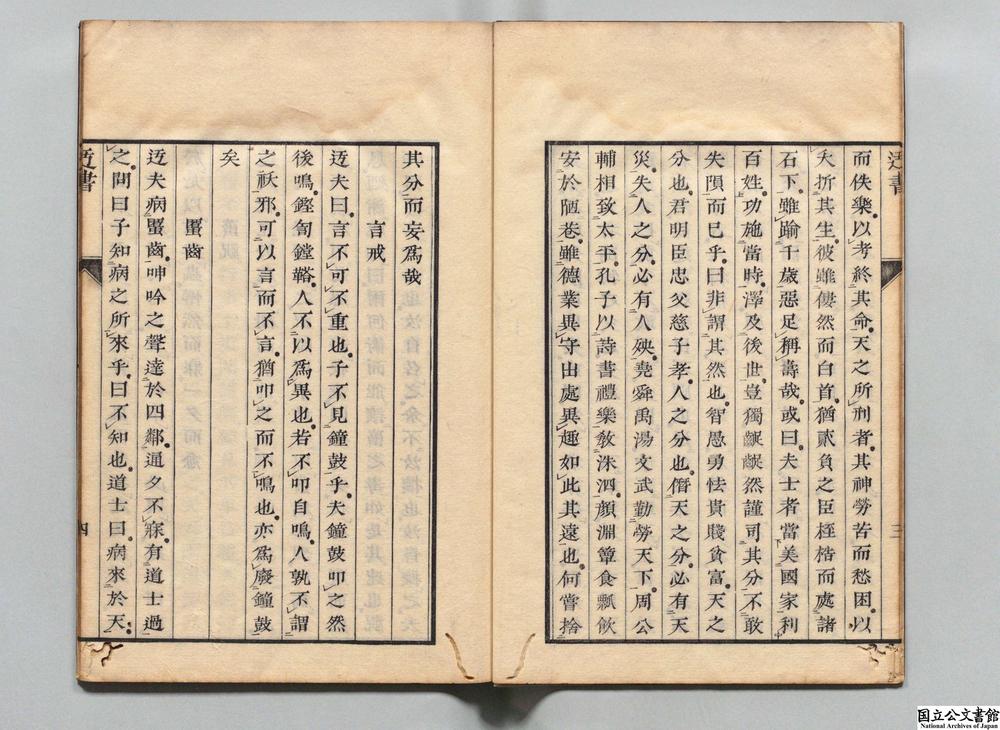 而佚樂以考終其命天之所刑者其神勞苦而愁困以
夭折其生彼雖僂然而白首猶貳負之臣桎梏而處諸
石下雖踰千歲惡足稱壽哉或曰夫士者當美國家利
百姓功施當時澤及後世豈獨齪齪然謹司其分不敢
失隕而已乎曰非謂其然也智愚勇怯貴賤貧富天之
分也君明臣忠父慈子孝人之分也僭天之分必有天
災失人之分必有人殃堯舜禹湯文武勤勞天下周公
輔相致太平孔子以詩書禮樂敎洙泗顏淵簞食瓢飮
安於陋巷雖德業異守出處異趣如此其遠也何嘗捨
迃書
三
其分而妄爲哉
言戒
迃夫曰言不可不重也子不見鐘鼓乎夫鐘鼓叩之然
後鳴鏗訇鏜鞳人不以爲異也若不叩自鳴人孰不謂
之祅邪可以言而不言猶叩之而不鳴也亦爲廢鐘鼓
矣
蠒齒
迃夫病蠒齒呻吟之聲達於四鄰通夕不寐有道士過
之問曰子知病之所來乎曰不知也道士曰病來於天
迃書
四
国立公文書館
National Archives of Japan